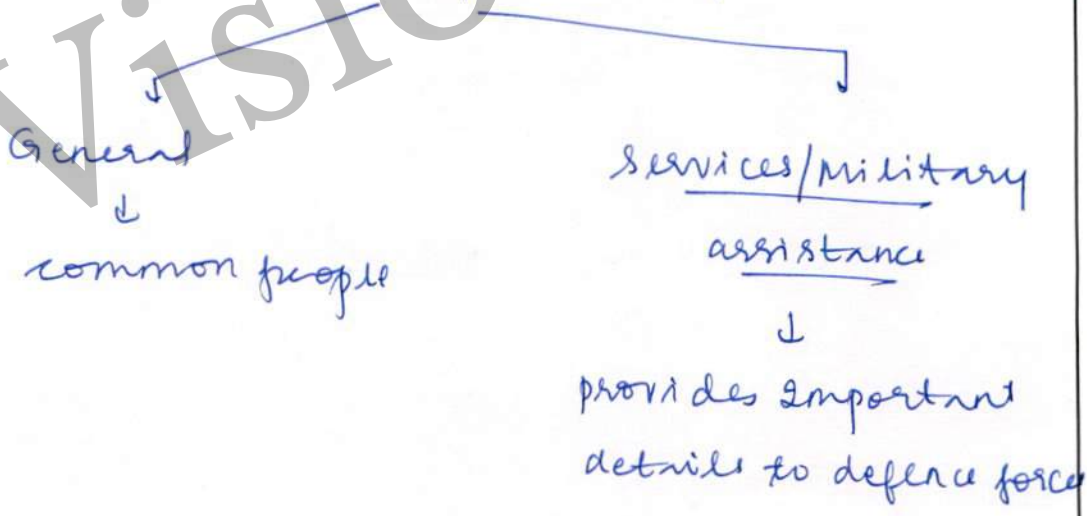 General
↓
common people
services/military
assistance
↓
provides Important
details to defence force